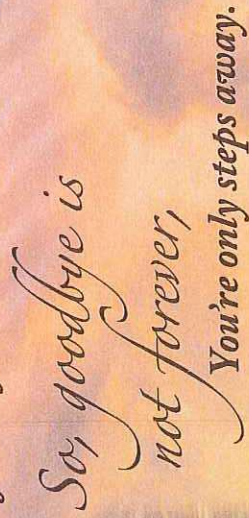 So, goodbye is
not forever,
You're only steps away.